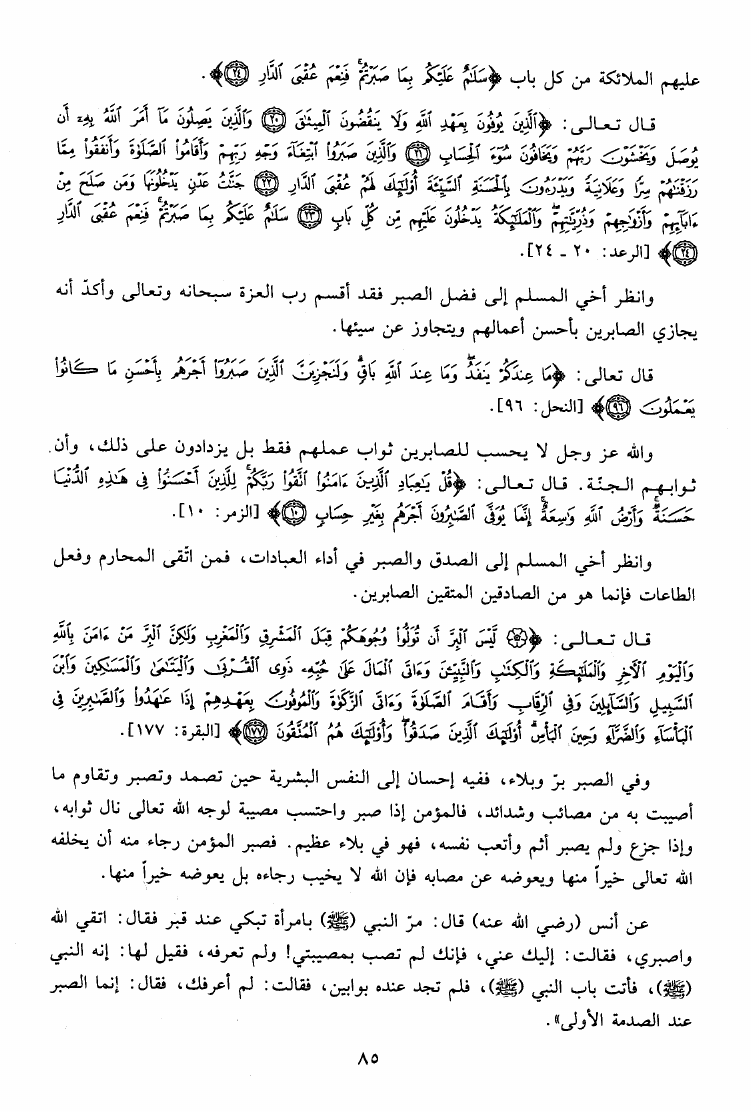 عليهم الملائكة من كل باب ﴿سَلَٰمٌ عَلَيْكُم بِمَا صَبَرْتُمْ ۚ فَنِعْمَ عُقْبَى ٱلدَّارِ ﴿٢٤﴾﴾.
قال تعالى: ﴿ٱلَّذِينَ يُوفُونَ بِعَهْدِ ٱللَّهِ وَلَا يَنقُضُونَ ٱلْمِيثَٰقَ ﴿٢٠﴾ وَٱلَّذِينَ يَصِلُونَ مَآ أَمَرَ ٱللَّهُ بِهِۦٓ أَن
يُوصَلَ وَيَخْشَوْنَ رَبَّهُمْ وَيَخَافُونَ سُوٓءَ ٱلْحِسَابِ ﴿٢١﴾ وَٱلَّذِينَ صَبَرُوا۟ ٱبْتِغَآءَ وَجْهِ رَبِّهِمْ وَأَقَامُوا۟ ٱلصَّلَوٰةَ وَأَنفَقُوا۟ مِمَّا
رَزَقْنَٰهُمْ سِرًّا وَعَلَانِيَةً وَيَدْرَءُونَ بِٱلْحَسَنَةِ ٱلسَّيِّئَةَ أُو۟لَٰٓئِكَ لَهُمْ عُقْبَى ٱلدَّارِ ﴿٢٢﴾ جَنَّٰتُ عَدْنٍ يَدْخُلُونَهَا وَمَن صَلَحَ مِنْ
ءَابَآئِهِمْ وَأَزْوَٰجِهِمْ وَذُرِّيَّٰتِهِمْ ۖ وَٱلْمَلَٰٓئِكَةُ يَدْخُلُونَ عَلَيْهِم مِّن كُلِّ بَابٍ ﴿٢٣﴾ سَلَٰمٌ عَلَيْكُم بِمَا صَبَرْتُمْ ۚ فَنِعْمَ عُقْبَى ٱلدَّارِ
﴿٢٤﴾﴾ [الرعد: ٢٠ ـ ٢٤].
وانظر أخي المسلم إلى فضل الصبر فقد أقسم رب العزة سبحانه وتعالى وأكدّ أنه
يجازي الصابرين بأحسن أعمالهم ويتجاوز عن سيئها.
قال تعالى: ﴿مَا عِندَكُمْ يَنفَدُ ۖ وَمَا عِندَ ٱللَّهِ بَاقٍ ۗ وَلَنَجْزِيَنَّ ٱلَّذِينَ صَبَرُوٓا۟ أَجْرَهُم بِأَحْسَنِ مَا كَانُوا۟
يَعْمَلُونَ ﴿٩٦﴾﴾ [النحل: ٩٦].
والله عز وجل لا يحسب للصابرين ثواب عملهم فقط بل يزدادون على ذلك، وأن
ثوابهم الجنّة. قال تعالى: ﴿قُلْ يَٰعِبَادِ ٱلَّذِينَ ءَامَنُوا۟ ٱتَّقُوا۟ رَبَّكُمْ ۚ لِلَّذِينَ أَحْسَنُوا۟ فِى هَٰذِهِ ٱلدُّنْيَا
حَسَنَةٌ ۗ وَأَرْضُ ٱللَّهِ وَٰسِعَةٌ ۗ إِنَّمَا يُوَفَّى ٱلصَّٰبِرُونَ أَجْرَهُم بِغَيْرِ حِسَابٍ ﴿١٠﴾﴾ [الزمر: ١٠].
وانظر أخي المسلم إلى الصدق والصبر في أداء العبادات، فمن اتّقى المحارم وفعل
الطاعات فإنما هو من الصادقين المتقين الصابرين.
قال تعالى: ﴿۞ لَّيْسَ ٱلْبِرَّ أَن تُوَلُّوا۟ وُجُوهَكُمْ قِبَلَ ٱلْمَشْرِقِ وَٱلْمَغْرِبِ وَلَٰكِنَّ ٱلْبِرَّ مَنْ ءَامَنَ بِٱللَّهِ
وَٱلْيَوْمِ ٱلْءَاخِرِ وَٱلْمَلَٰٓئِكَةِ وَٱلْكِتَٰبِ وَٱلنَّبِيِّۦنَ وَءَاتَى ٱلْمَالَ عَلَىٰ حُبِّهِۦ ذَوِى ٱلْقُرْبَىٰ وَٱلْيَتَٰمَىٰ وَٱلْمَسَٰكِينَ وَٱبْنَ
ٱلسَّبِيلِ وَٱلسَّآئِلِينَ وَفِى ٱلرِّقَابِ وَأَقَامَ ٱلصَّلَوٰةَ وَءَاتَى ٱلزَّكَوٰةَ وَٱلْمُوفُونَ بِعَهْدِهِمْ إِذَا عَٰهَدُوا۟ ۖ وَٱلصَّٰبِرِينَ فِى
ٱلْبَأْسَآءِ وَٱلضَّرَّآءِ وَحِينَ ٱلْبَأْسِ ۗ أُو۟لَٰٓئِكَ ٱلَّذِينَ صَدَقُوا۟ ۖ وَأُو۟لَٰٓئِكَ هُمُ ٱلْمُتَّقُونَ ﴿١٧٧﴾﴾ [البقرة: ١٧٧].
وفي الصبر برّ وبلاء، ففيه إحسان إلى النفس البشرية حين تصمد وتصبر وتقاوم ما
أصيبت به من مصائب وشدائد، فالمؤمن إذا صبر واحتسب مصيبة لوجه الله تعالى نال ثوابه،
وإذا جزع ولم يصبر أثم وأتعب نفسه، فهو في بلاء عظيم. فصبر المؤمن رجاء منه أن يخلفه
الله تعالى خيراً منها ويعوضه عن مصابه فإن الله لا يخيب رجاءه بل يعوضه خيراً منها.
عن أنس (رضي الله عنه) قال: مرّ النبي (ﷺ) بامرأة تبكي عند قبر فقال: اتقي الله
واصبري، فقالت: إليك عني، فإنك لم تصب بمصيبتي! ولم تعرفه، فقيل لها: إنه النبي
(ﷺ)، فأتت باب النبي (ﷺ)، فلم تجد عنده بوابين، فقالت: لم أعرفك، فقال: إنما الصبر
عند الصدمة الأولى».
٨٥